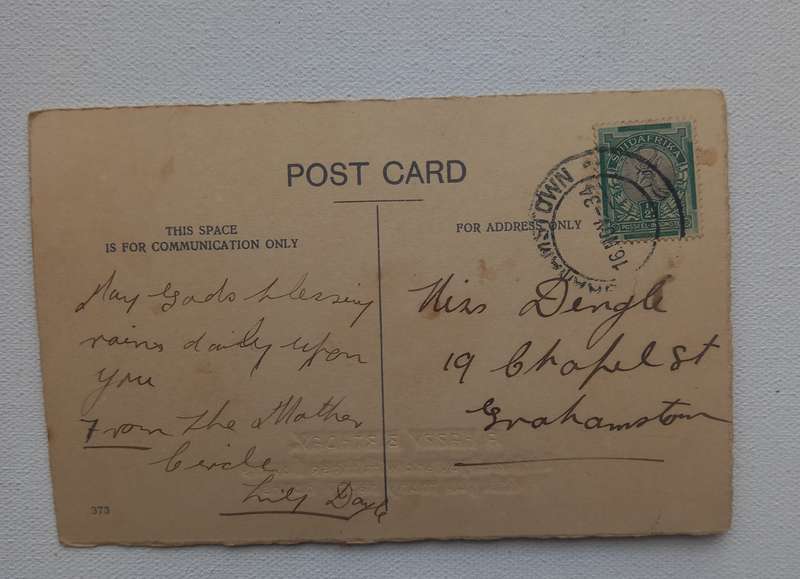 POST CARD
THIS SPACE
IS FOR COMMUNICATION ONLY
FOR ADDRESS ONLY
SUIDAFRIKA
1/2
GRAHAMSTOWN
16 NOV 34
May Gods blessing
rains daily upon
you
From the Mother
Circle
Lily Doyle
Miss Dengle
19 Chapel St
Grahamstown
373